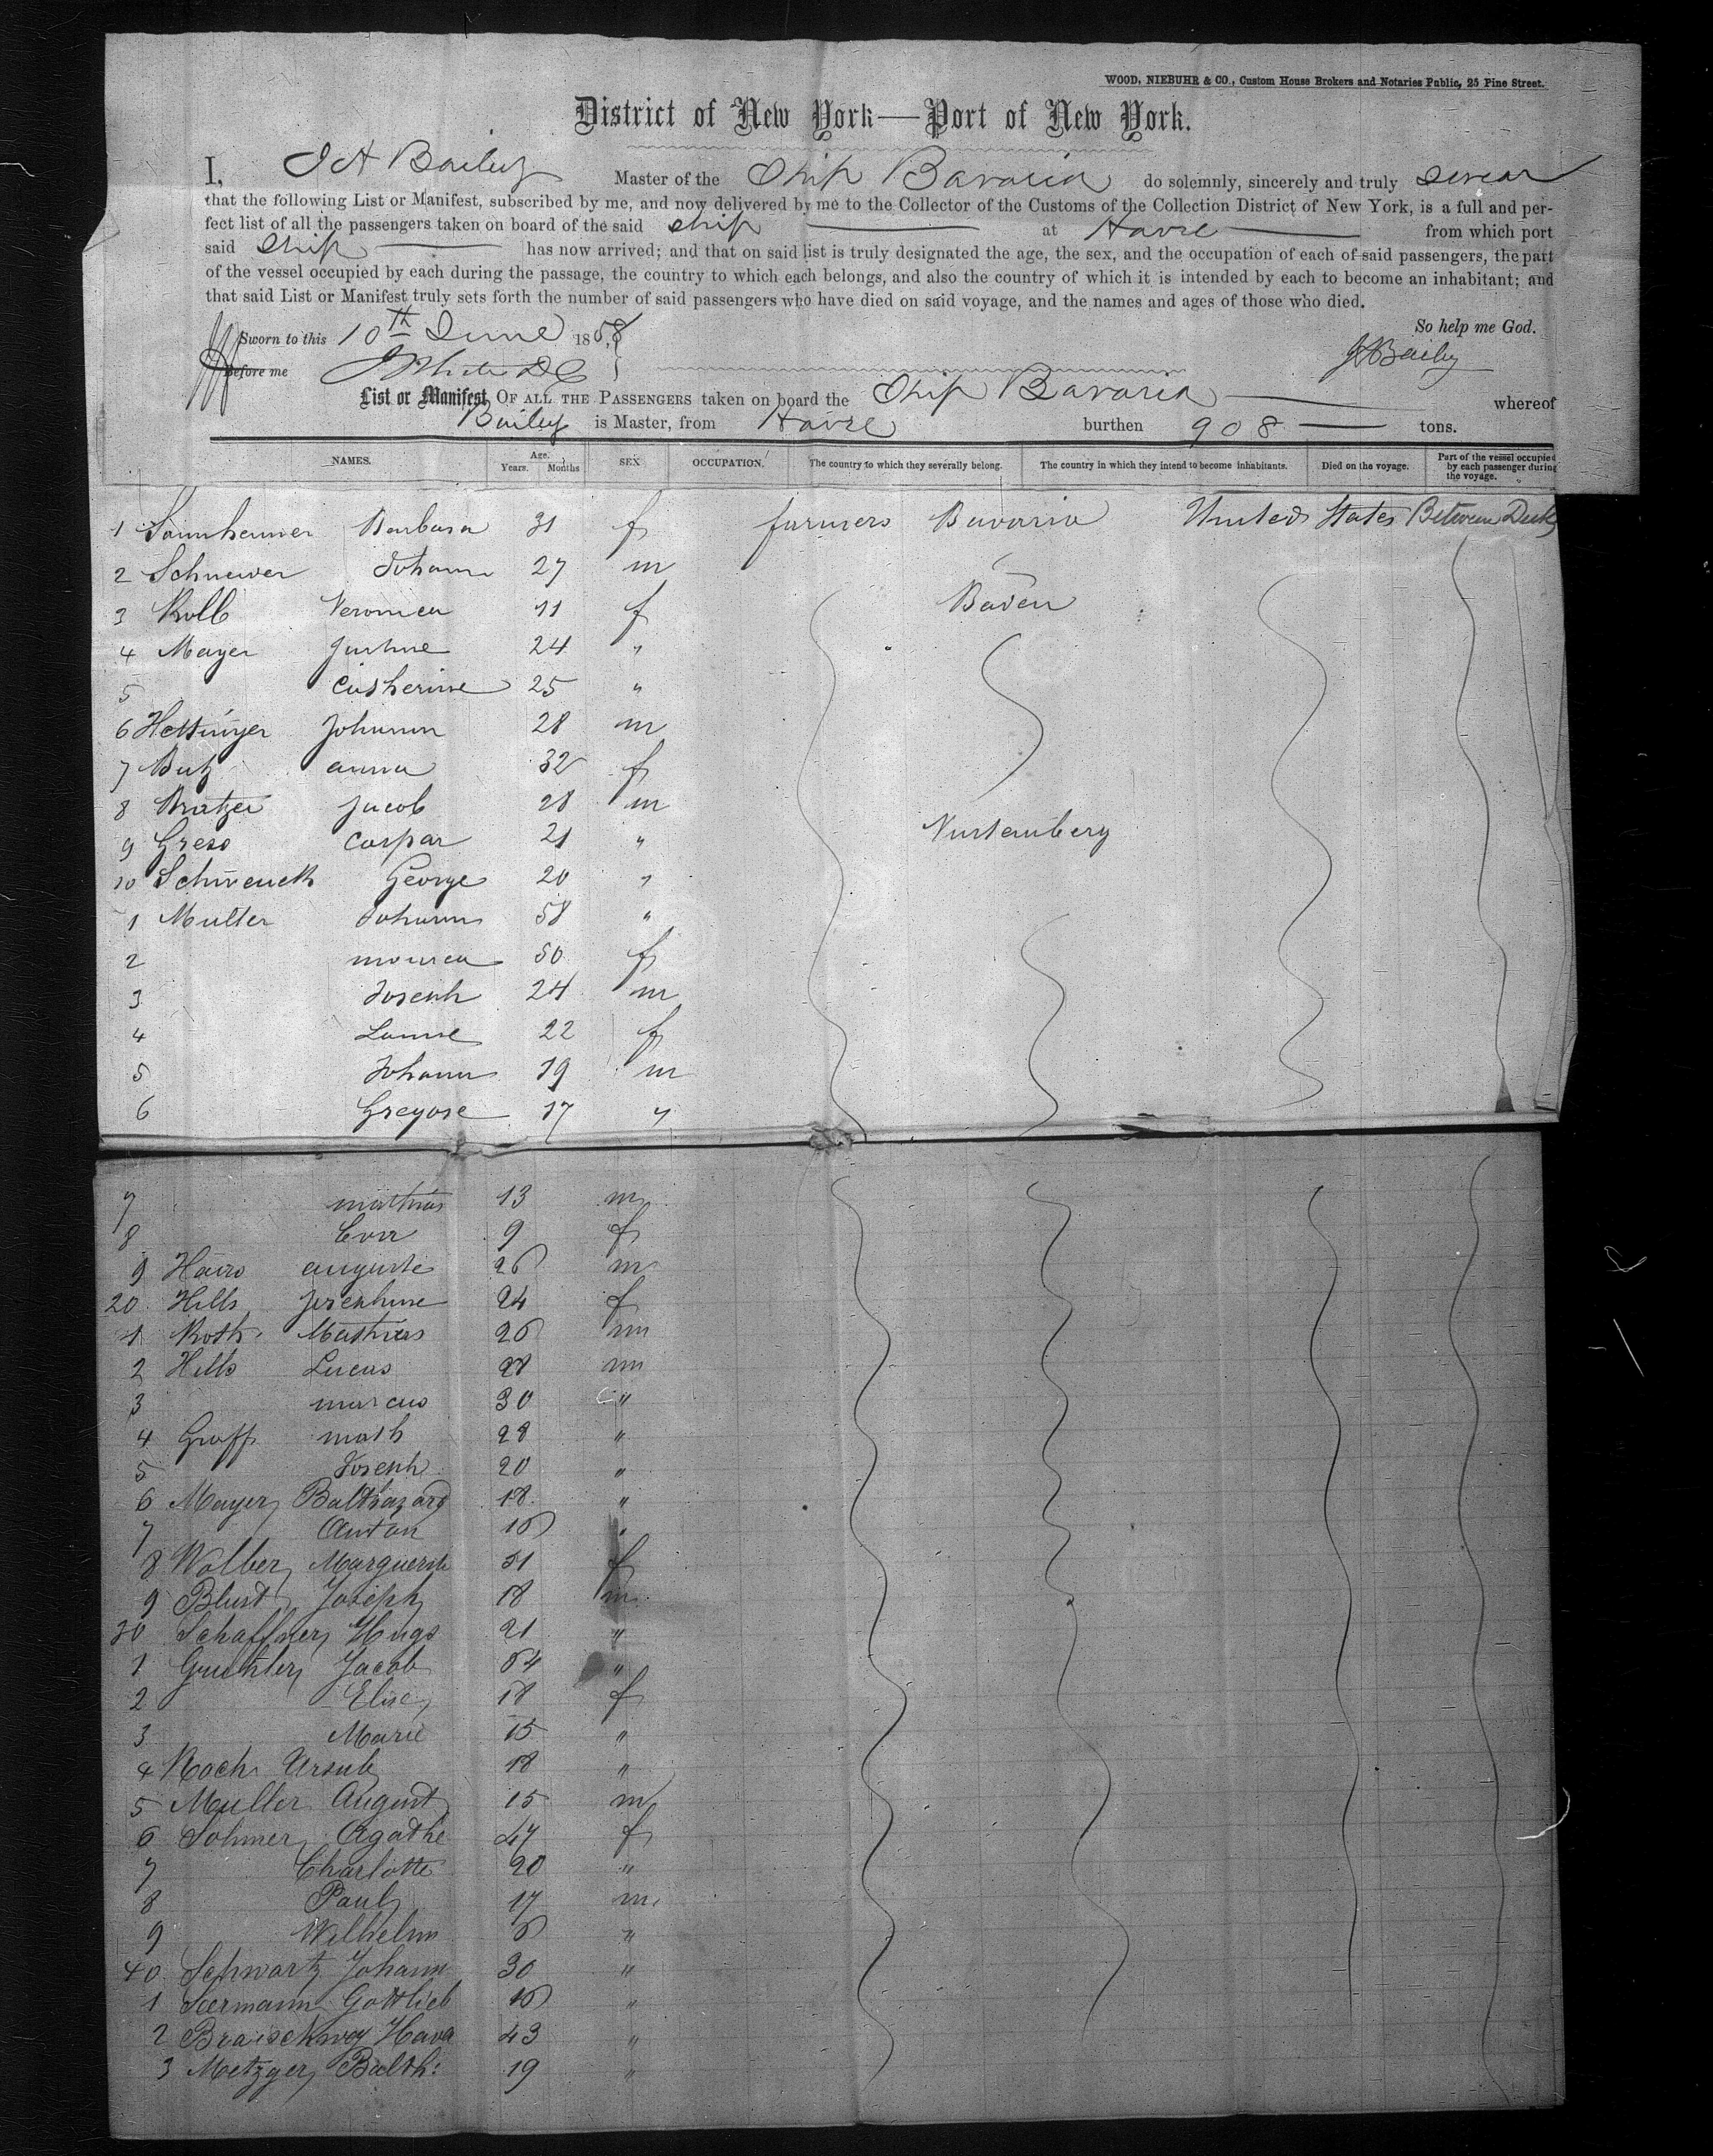 WOOD, NIEBUHR & CO., Custom House Brokers and Notaries Public, 25 Pine Street.
District of New York—Port of New York.
I, J A Bailey Master of the Ship Bavaria do solemnly, sincerely and truly swear
that the following List or Manifest, subscribed by me, and now delivered by me to the Collector of the Customs of the Collection District of New York, is a full and per-
fect list of all the passengers taken on board of the said ship at Havre from which port
said ship has now arrived; and that on said list is truly designated the age, the sex, and the occupation of each of said passengers, the part
of the vessel occupied by each during the passage, the country to which each belongs, and also the country of which it is intended by each to become an inhabitant; and
that said List or Manifest truly sets forth the number of said passengers who have died on said voyage, and the names and ages of those who died.
So help me God.
Sworn to this 10th June 1858
Before me
J A Bailey
List or Manifest OF ALL THE PASSENGERS taken on board the Ship Bavaria whereof
Bailey is Master, from Havre burthen 908 tons.
NAMES. Age. Years. Months SEX OCCUPATION. The country to which they severally belong. The country in which they intend to become inhabitants. Died on the voyage. Part of the vessel occupied by each passenger during the voyage.
1 Barbara 31 f farmers Bavaria United States Between Decks
2 Johann 27 m
3 Kolb Veronica 11 f Baden
4 Mayer Justine 24 "
5 Catherine 25 "
6 Hettinger Johann 28 m
7 Butz anna 32 f
8 Jacob 28 m
9 Caspar 21 " Wurtemberg
10 Schwenck George 20 "
1 Muller Johann 58 "
2 monica 50 f
3 Joseph 24 m
4 Louise 22 f
5 Johann 19 m
6 Gregore 17 "
7 mathias 13 m
8 Eva 9 f
9 auguste 26 m
20 Hills Josephine 24 f
1 Roth Mathias 26 m
2 Hills Lucas 28 m
3 marcus 30 "
4 Groff math 28 "
5 Joseph 20 "
6 Mayer Balthazard 18 "
7 Anton 16 "
8 Walber Marguerite f
9 Blust Joseph 18 m
30 Schaffner Hugo 21 "
1 Jacob 54 "
2 Elise 18 f
3 Marie 15 "
4 Koch Ursule 18 "
5 Muller August 15 m
6 Sohmer Agathe 47 f
7 Charlotte 20 "
8 Paul 17 m
9 Wilhelm 6 "
40 Schwartz Johann 30 "
1 Seermann Gottlieb 16 "
2 43 "
3 Metzger Balth: 19 "